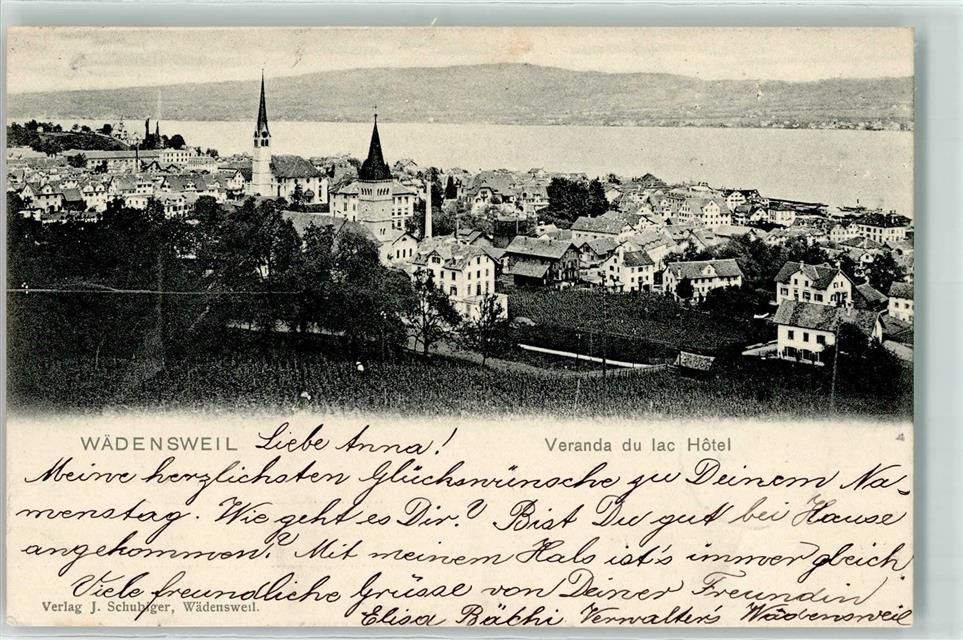 WÄDENSWEIL Liebe Anna! Veranda du lac Hôtel
Meine herzlichsten Glückswünsche zu Deinem Na-
menstag. Wie geht es Dir? Bist Du gut bei Hause
angekommen? Mit meinem Hals ist's immer gleich.
Viele freundliche Grüsse von Deiner Freundin
Verlag J. Schubiger, Wädensweil.
Elisa Bächi Verwalter's Wädensweil